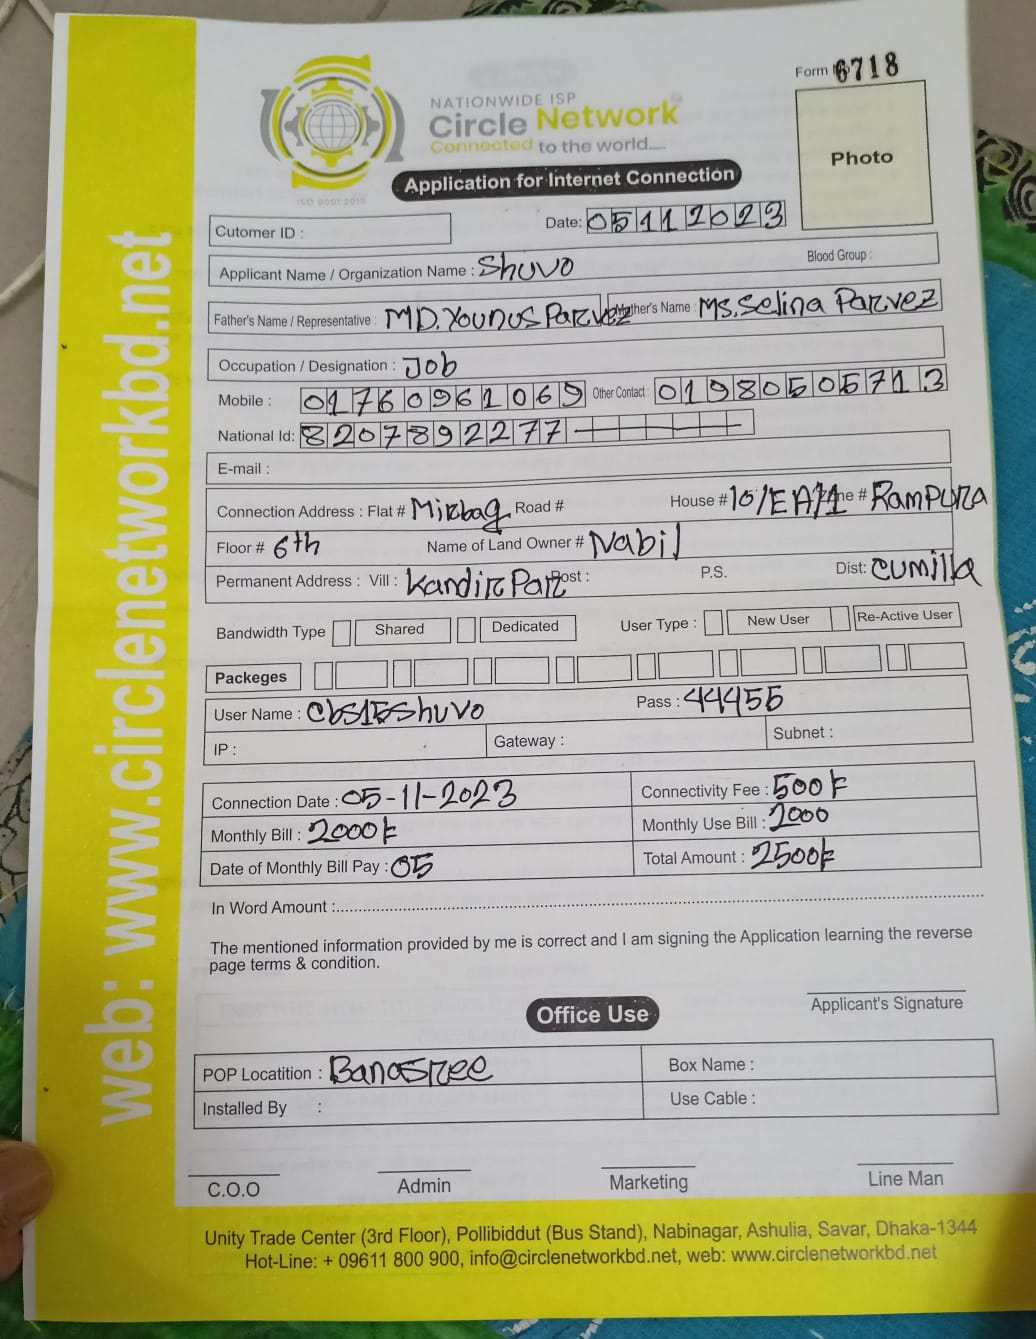 Form 6718
NATIONWIDE ISP
Circle Network
Connected to the world.....
ISO 9001:2015
Photo
Application for Internet Connection
Cutomer ID :
Date: 05112023
Applicant Name / Organization Name : Shuvo Blood Group :
Father's Name / Representative : MD. Younus Parvez Mother's Name : MS. Selina Parvez
Occupation / Designation : Job
Mobile : 01760961069 Other Contact : 01980505713
National Id: 8207892277
E-mail :
Connection Address : Flat # Mirbag Road # House # 10/EA/1 Rampura
Floor # 6th Name of Land Owner # Nabil
Permanent Address : Vill : Kandir Par Post : P.S. Dist: cumilla
Bandwidth Type Shared Dedicated User Type : New User Re-Active User
Packeges
User Name : Cbs15shuvo Pass : 44455
IP : Gateway : Subnet :
Connection Date : 05-11-2023 Connectivity Fee : 500
Monthly Bill : 2000 Monthly Use Bill : 2000
Date of Monthly Bill Pay : 05 Total Amount : 2500
In Word Amount :
The mentioned information provided by me is correct and I am signing the Application learning the reverse
page terms & condition.
Applicant's Signature
Office Use
POP Locatition : Banasree Box Name :
Installed By : Use Cable :
C.O.O Admin Marketing Line Man
Unity Trade Center (3rd Floor), Pollibiddut (Bus Stand), Nabinagar, Ashulia, Savar, Dhaka-1344
Hot-Line: + 09611 800 900, info@circlenetworkbd.net, web: www.circlenetworkbd.net
web: www.circlenetworkbd.net